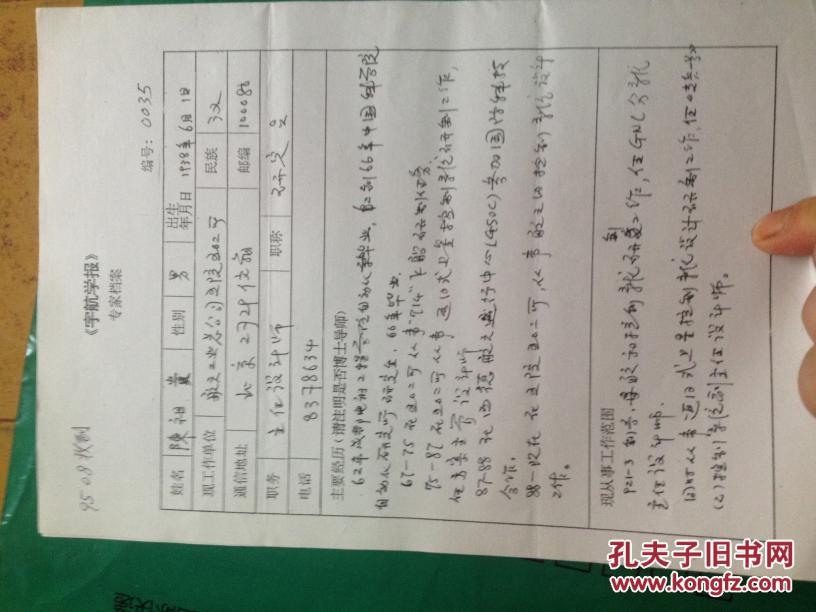 9508收到
《宇航学报》
专家档案
编号：0035
姓名 陳祖貴 性别 男 出生年月日 1938年6月1日
现工作单位 航天工业总公司五院五〇二所 民族 汉
通信地址 北京2729信箱 邮编 100080
职务 主任设计师 职称 研究员
电话 8378634
主要经历（请注明是否博士导师）
62年成都电讯工程学院自动化系毕业，62到66年中国科学院
自动化研究所研究生，66年毕业。
67-75 在五〇二所从事"714"飞船研制任务
75-87 在五〇二所从事返回式卫星控制系统研制工作，
任方案主管设计师
87-88 在西德航天运行中心(GSOC)参加国际科技
合作。
88-现在 在五院五〇二所，从事航天的控制系统设计
工作。
现从事工作范围
921-3 制导，导航和控制系统研制工作，任GNC分系统
主任设计师。
(2)控制系统副主任设计师。
孔夫子旧书网
www.kongfz.com